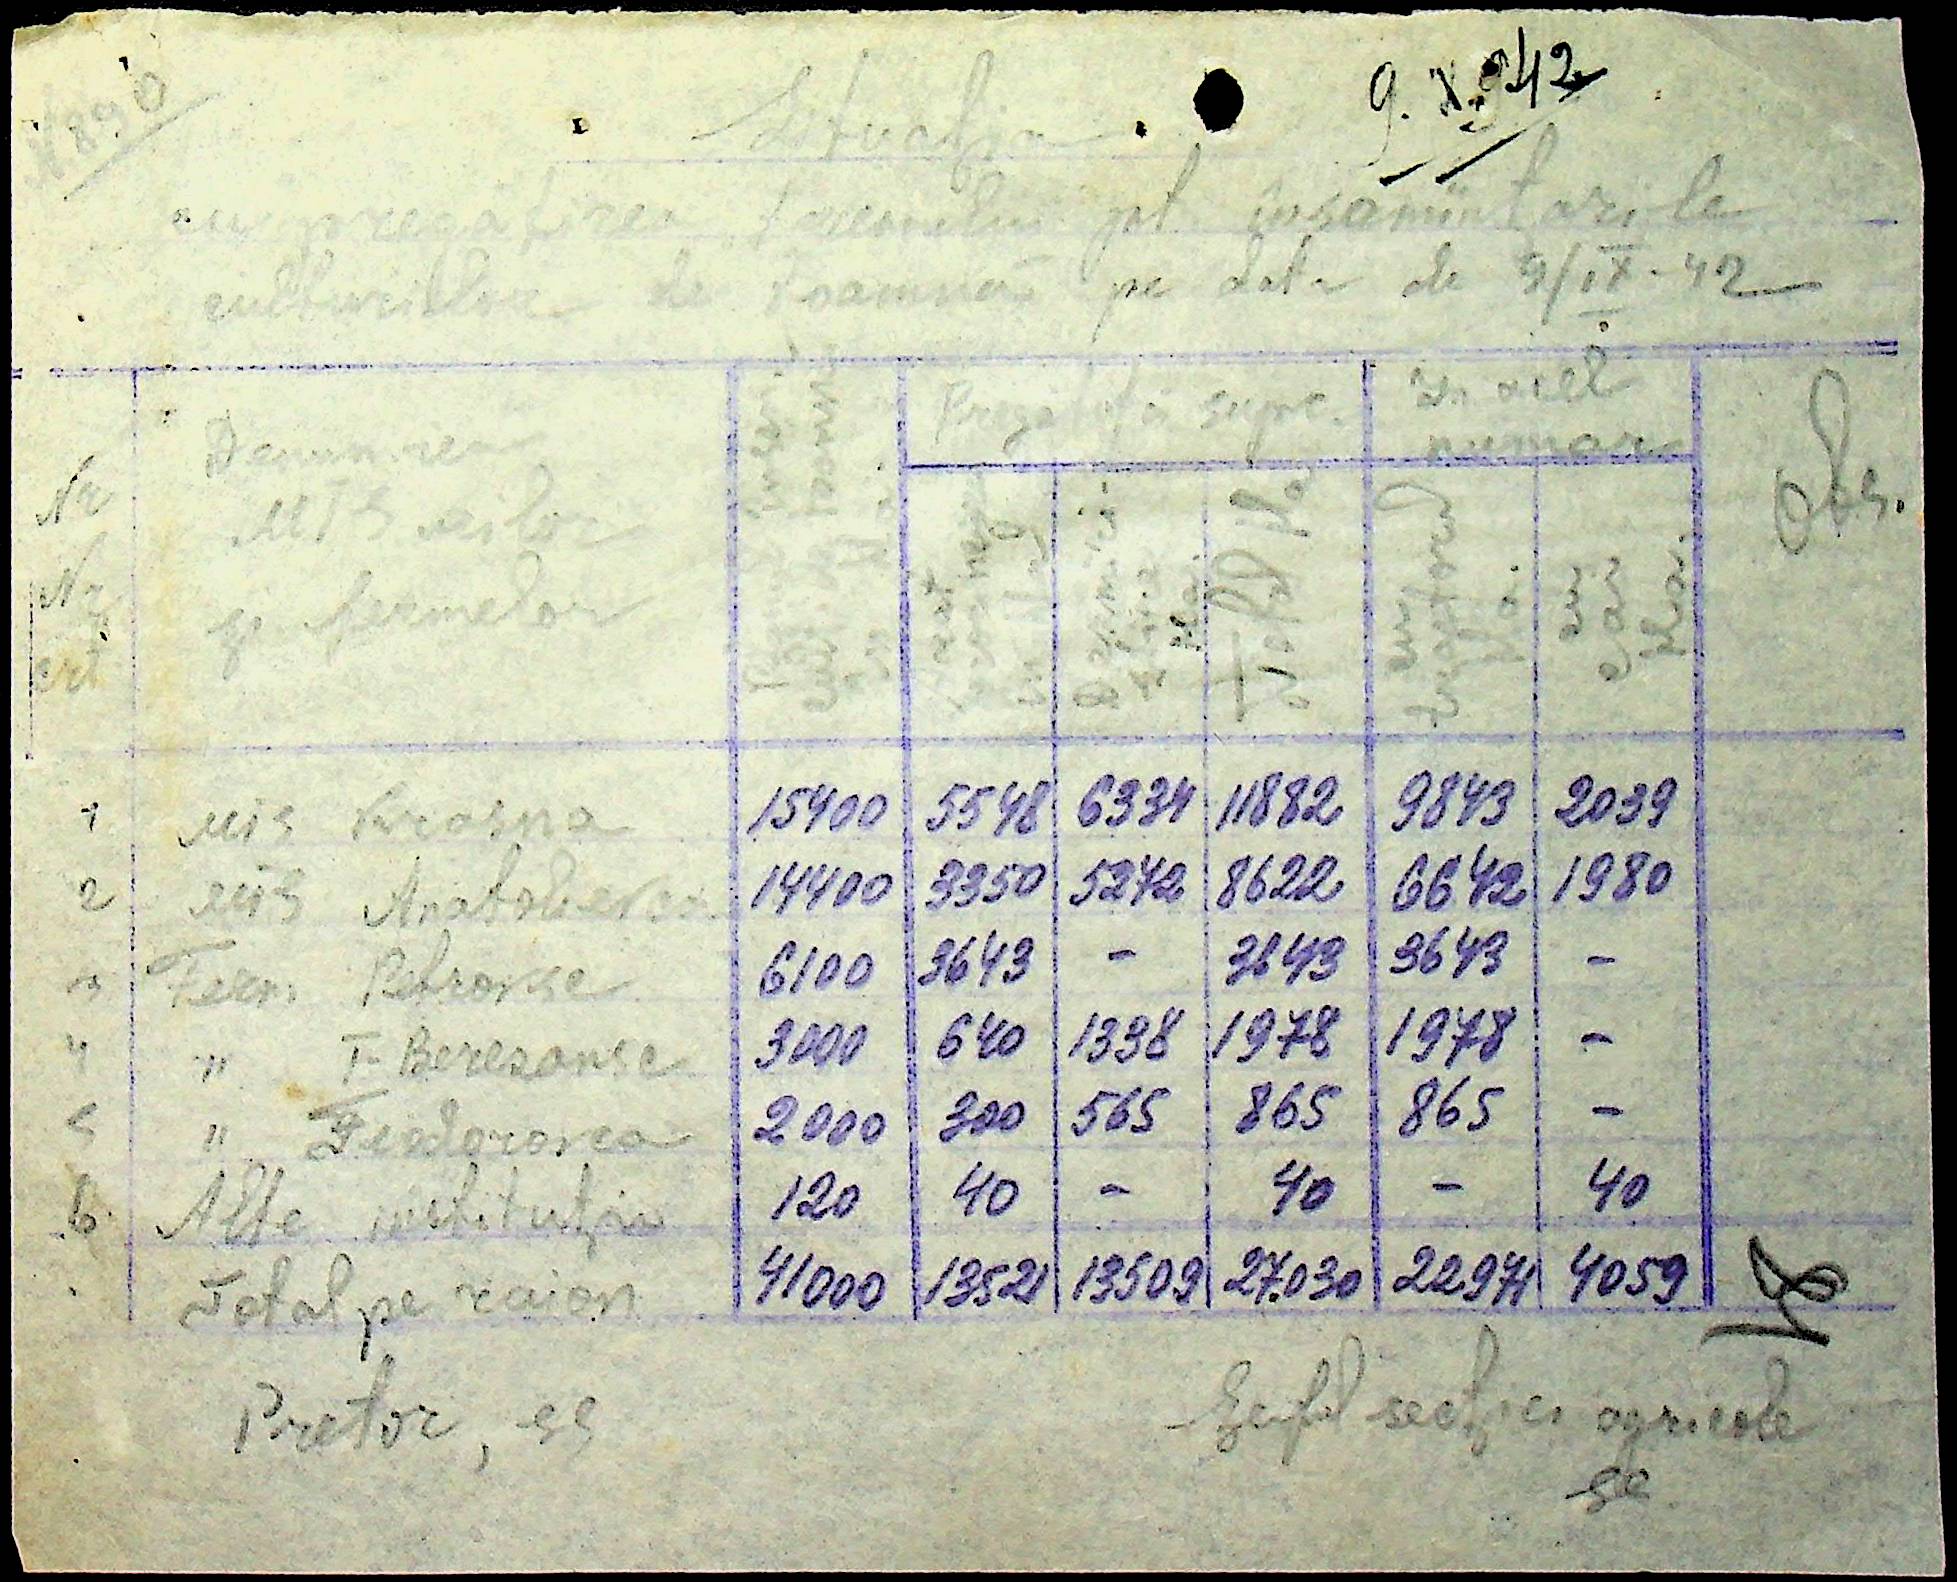 N 890
9. X. 942
Situația
cu pregătirea terenului pt. însămînțările
culturilor de toamnă pe data de 9/IX-42
Nr Nr crt
Denumirea MTS-urilor și fermelor
Pregătită supr.
Total Ha
In acel număr
cu tractorul
cu cai
Obs.
1 MTS Krasna 15400 5548 6334 11882 9843 2039
2 MTS Anatolievca 14400 3350 5272 8622 6642 1980
3 Ferm. Petrovsc 6100 3643 - 3643 3643 -
4 " T-Berezansc 3000 640 1338 1978 1978 -
5 " Feodorovca 2000 300 565 865 865 -
6 Alte instituții 120 40 - 40 - 40
Total pe raion 41000 13521 13509 27.030 22971 4059
Pretor, ss
Șeful secției agricole
ss